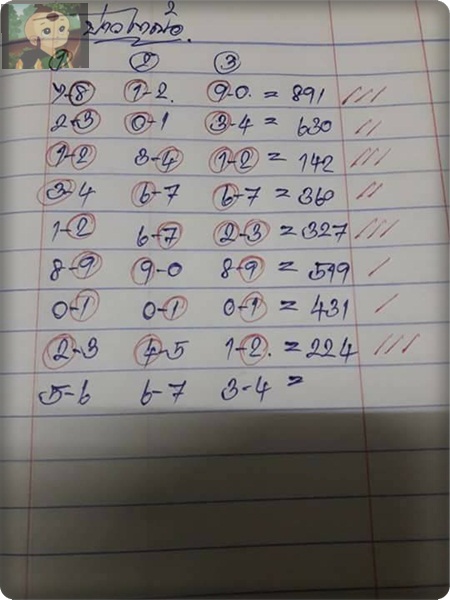 2
1 2 3
7-8 1-2. 9-0. = 891
2-3 0-1 3-4 = 630
1-2 3-4 1-2 = 142
3-4 6-7 6-7 = 36
1-2 6-7 2-3 = 327
8-9 9-0 8-9 = 599
0-1 0-1 0-1 = 431
2-3 4-5 1-2. = 224
5-6 6-7 3-4 =